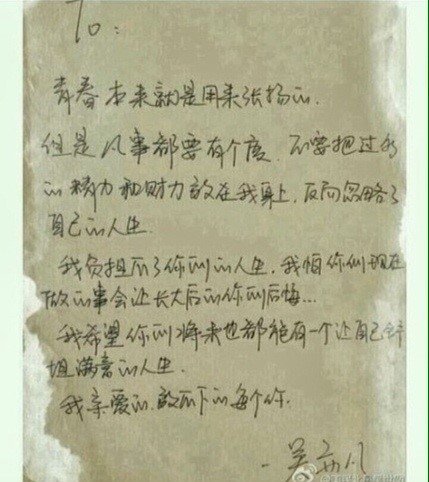 To：
青春本来就是用来张扬的.
但是凡事都要有个度. 不要把过多
的精力和财力放在我身上, 反而忽略了
自己的人生.
我负担不了你们的人生. 我怕你们现在
做的事会让长大后的你们后悔...
我希望你们将来也都能有一个让自己
坦满意的人生.
我亲爱的. 放不下的每个你.
- 吴亦凡